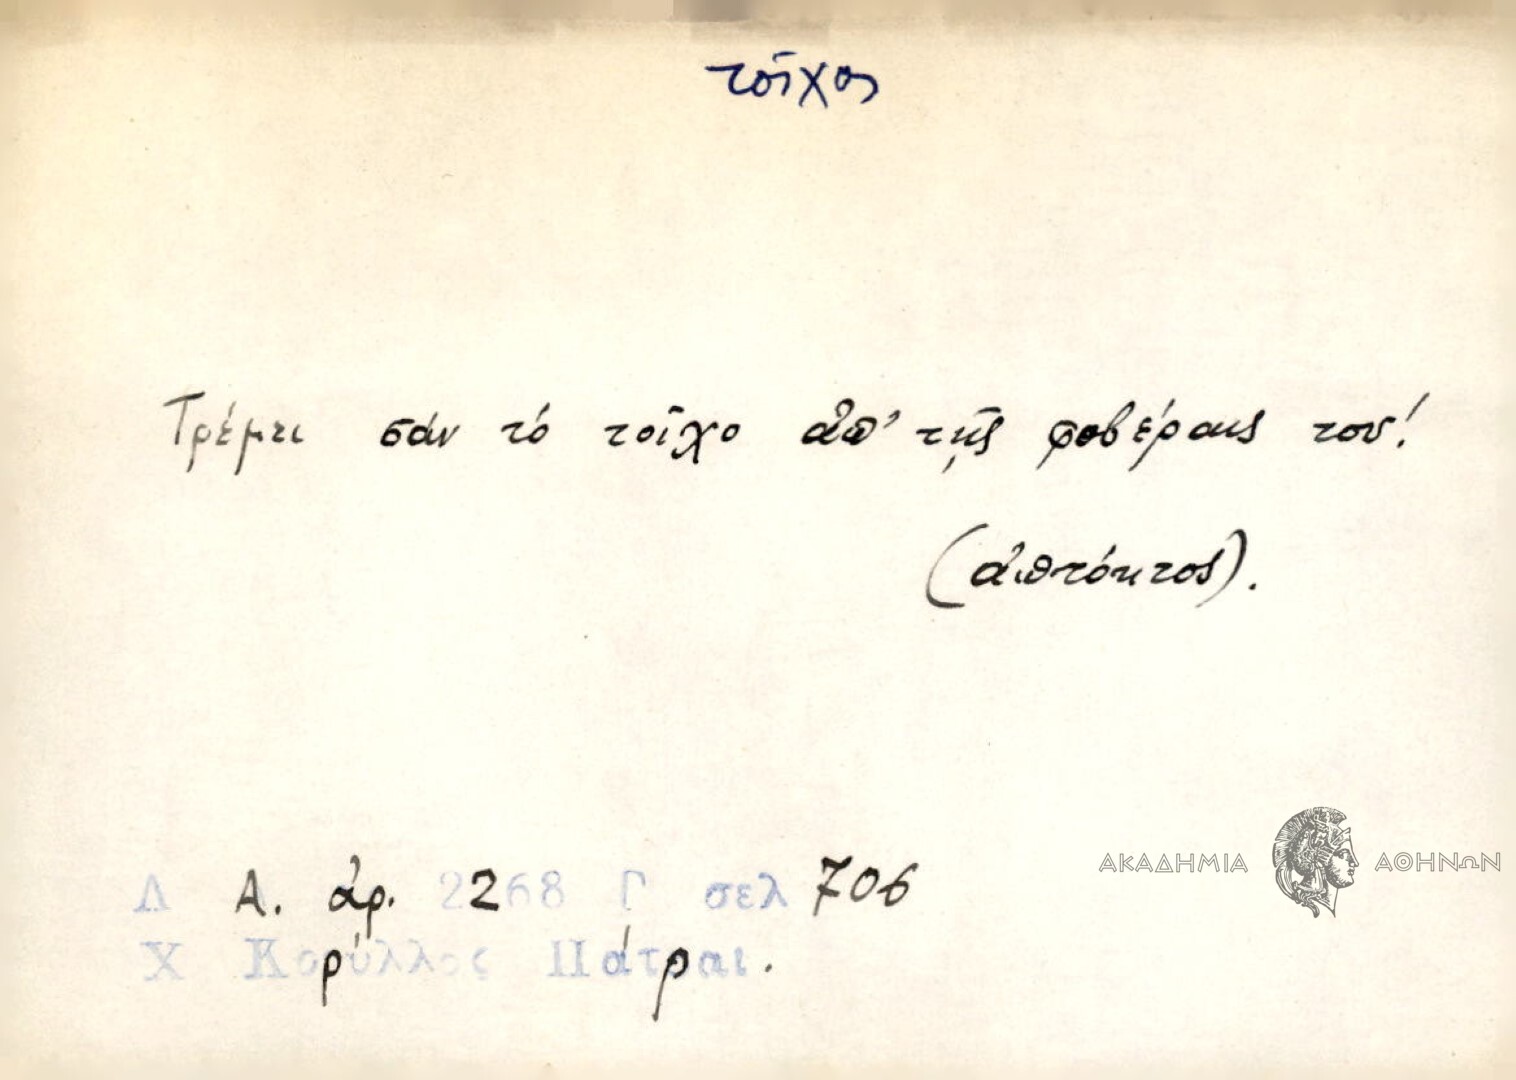 τοῖχος
Τρέμει σάν τό τοῖχο ἀπ' τῆς φοβέραις του!
(ἀπτόητος).
Λ Α. ἀρ. 2268 Γ σελ 706
Χ Κορύλλος Πάτραι.
ΑΚΑΔΗΜΙΑ ΑΘΗΝΩΝ